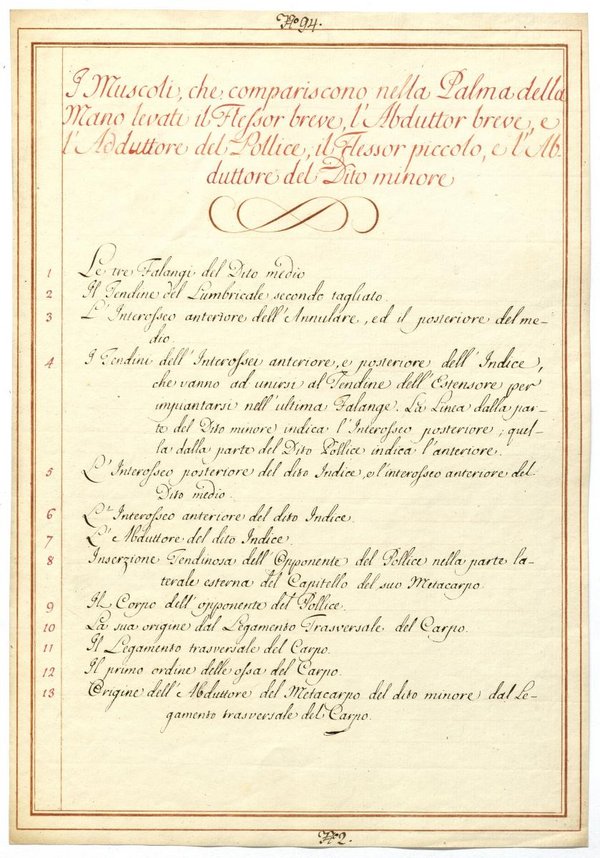 No 94.
I Muscoli, che compariscono nella Palma della
Mano levati il Flessor breve, l'Abduttor breve, e
l'Adduttore del Pollice, il Flessor piccolo, e l'Ab-
duttore del Dito minore
1 Le tre Falangi del Dito medio
2 Il Tendine del Lumbricale secondo tagliato.
3 L'Interosseo anteriore dell'Annulare, ed il posteriore del me-
dio.
4 I Tendini dell'Interossei anteriore, e posteriore dell'Indice,
che vanno ad unirsi al Tendine dell'Estensore per
impiantarsi nell'ultima Falange. La Linea dalla par-
te del Dito minore indica l'Interosseo posteriore; quel-
la dalla parte del Dito Pollice indica l'anteriore.
5 L'Interosseo posteriore del dito Indice, e l'interosseo anteriore del
Dito medio.
6 L'Interosseo anteriore del dito Indice.
7 L'Abduttore del dito Indice.
8 Inserzione Tendinosa dell'Opponente del Pollice nella parte la-
terale esterna del Capitello del suo Metacarpo.
9 Il Corpo dell'opponente del Pollice.
10 La sua origine dal Legamento Trasversale del Carpo.
11 Il Legamento trasversale del Carpo.
12 Il primo ordine delle ossa del Carpo.
13 Origine dell'Abduttore del Metacarpo del dito minore dal Le-
gamento trasversale del Carpo.
No 2.